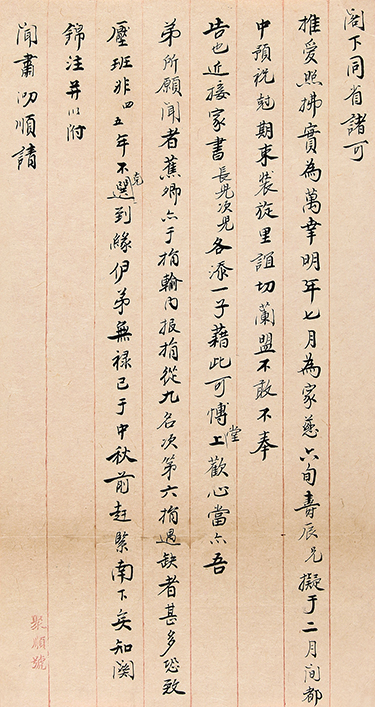 閣下同省諸可
推愛照拂實為萬幸明年七月為家慈六旬壽辰兄擬于二月間都
中預祝尅期束裝旋里誼切蘭盟不敢不奉
告也近接家書長兄次兄各添一子藉此可慱堂上歡心當亦吾
弟所願聞者蕉卿亦于捐輸內報捐從九名次第六捐過缺者甚多恐致
壓班非四五年不克選到緣伊弟無祿已于中秋前趕緊南下矣知關
錦注并以附
聞肅泐順請
聚順號